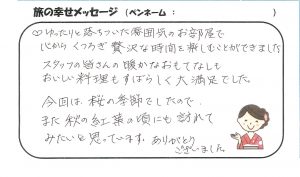 旅の幸せメッセージ (ペンネーム： )
♡ゆったりと落ちついた雰囲気のお部屋で
心からくつろぎ贅沢な時間を楽しむことができました
スタッフの皆さんの暖かなおもてなしも
おいしい料理もすばらしく大満足でした。
今回は、桜の季節でしたので
また秋の紅葉の頃にも訪れて
みたいと思っています。ありがとう
ございました。